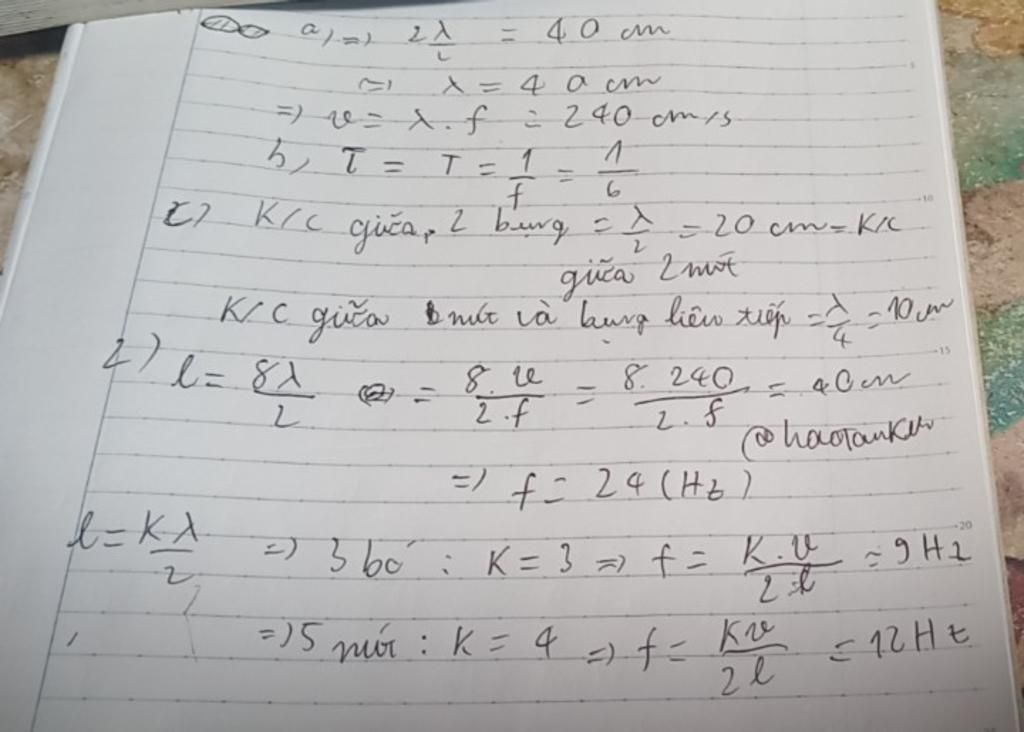 a, => 2λ/2 = 40 cm
=> λ = 40 cm
=> v = λ . f = 240 cm/s
b, T = T = 1/f = 1/6
c) K/c giữa, 2 bụng = λ/2 = 20 cm = K/c
giữa 2 nút
K/c giữa nút và bụng liên tiếp = λ/4 = 10 cm
2) l = 8λ/2 = 8.v/2.f = 8.240/2.f = 40 cm
=> f = 24 (Hz)
l = Kλ/2 => 3 bó : K = 3 => f = K.v/2.l = 9 Hz
=> 5 nút : K = 4 => f = Kv/2l = 12 Hz